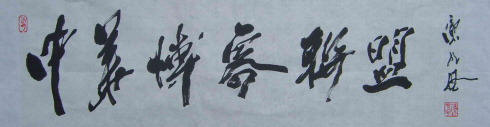 中華博客聯盟